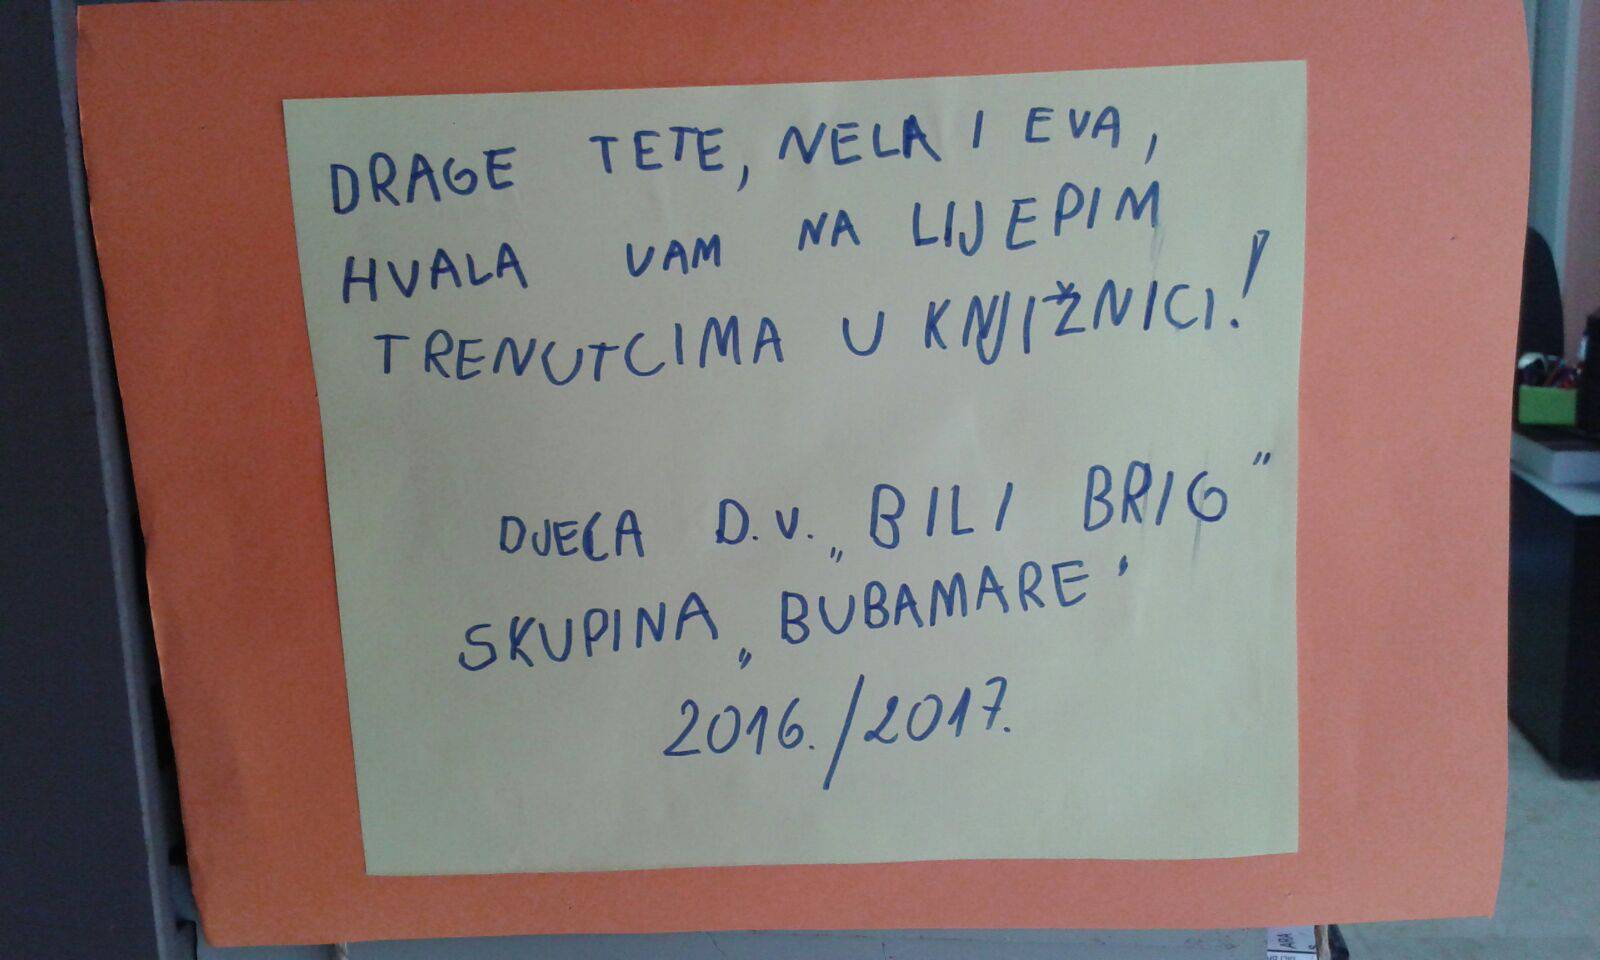 DRAGE TETE, NELA I EVA,
HVALA VAM NA LIJEPIM
TRENUTCIMA U KNJIŽNICI!
DJECA D.V. „BILI BRIG"
SKUPINA „BUBAMARE"
2016./2017.
ARA